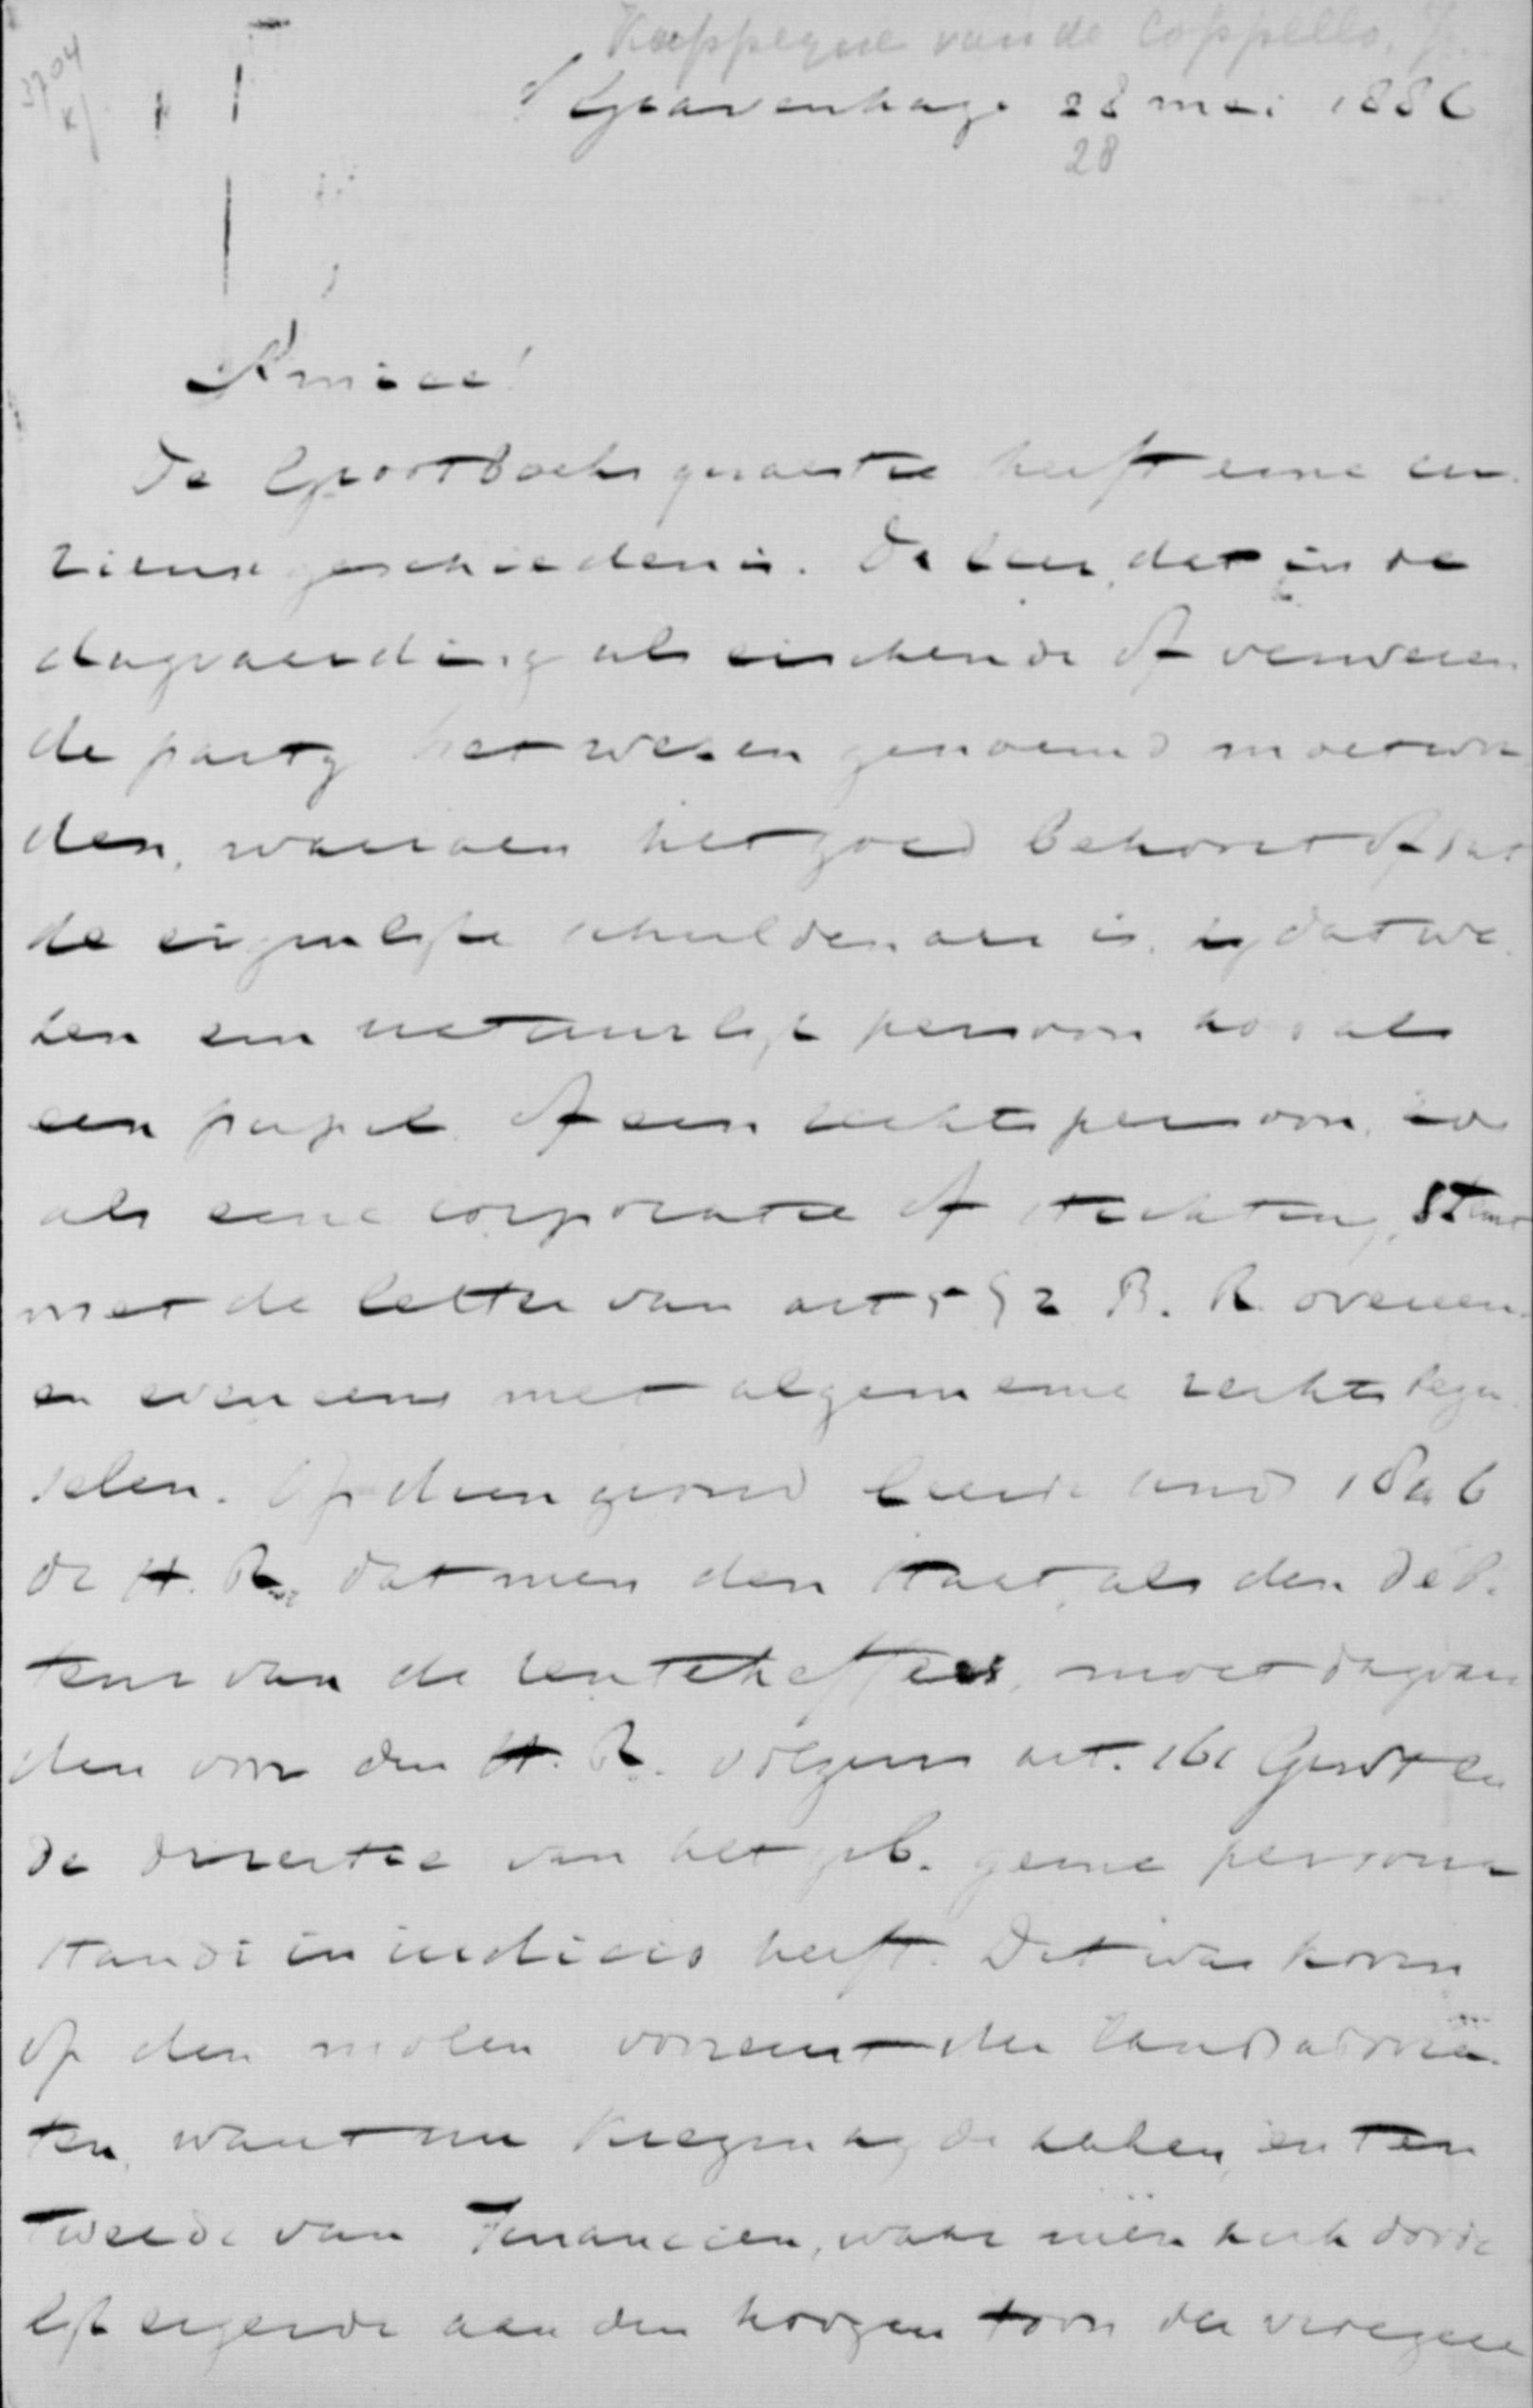 3704
K/
Kappeyne van de Coppello, J.
's Gravenhage 28 mei 1886
28
Amice!
De Grootboeks quaestie heeft eene cu-
rieuse geschiedenis. De leer, dat in de
dagvaarding als eischende of verweren
de party het wezen genoemd moet wor
den, waaraan het goed behoort of dat
de eigenlyke schuldenaar is, zy dat we
zen een natuurlyk persoon zooals
een pupil of een rechtspersoon, zoo
als eene corporatie of stichting, stemt
met de letter van art 5 § 2 B. R. overeen
en eveneens met algemeene rechtsbegin
selen. Op dien grond leerde sinds 1846
de H. R. dat men den Staat, als den deb.
teur van de renteheffers, moet dagvaar
den voor den H. R. volgens art. 161 Grondt en
de directie van het gb. geene persona
standi in iudicio heeft. Dit was koren
op den molen van der landsadvoca
ten, want nu kregen zy de zaken, en ten
tweede van Financien, waar men zich dood
lyk ergerde aan den hoogen toon der